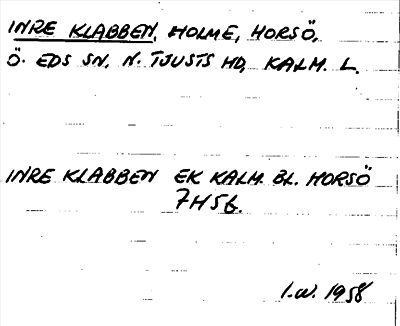 INRE KLABBEN, HOLME, HORSÖ,
Ö. EDS SN, N. TJUSTS HD, KALM. L.
INRE KLABBEN EK KALM. BL. HORSÖ
7H5G.
I.W. 1958